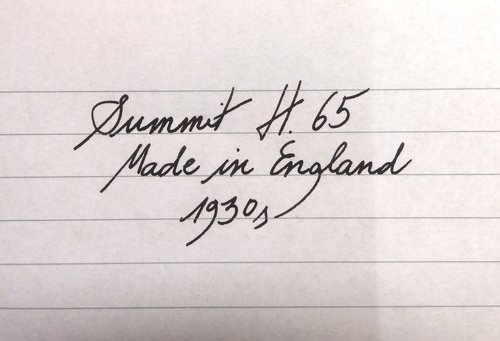 Summit H. 65
Made in England
1930s